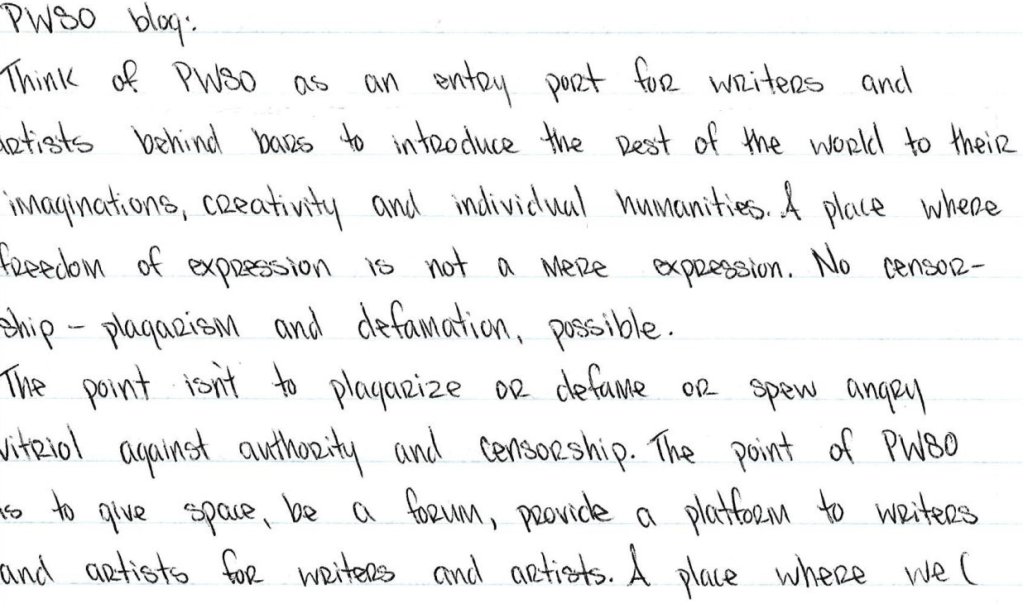 PWSO blog:
Think of PWSO as an entry port for writers and
artists behind bars to introduce the rest of the world to their
imaginations, creativity and individual humanities. A place where
freedom of expression is not a mere expression. No censor-
ship - plagarism and defamation, possible.
The point isn't to plagarize or defame or spew angry
vitriol against authority and censorship. The point of PWSO
is to give space, be a forum, provide a platform to writers
and artists for writers and artists. A place where we (